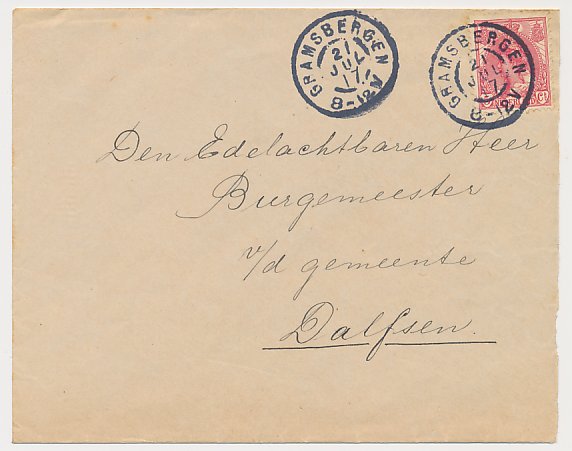 GRAMSBERGEN
21
JUL
17
8-12V
GRAMSBERGEN
21
JUL
17
8-12V
Den Edelachtbaren Heer
Burgemeester
v/d gemeente
Dalfsen.